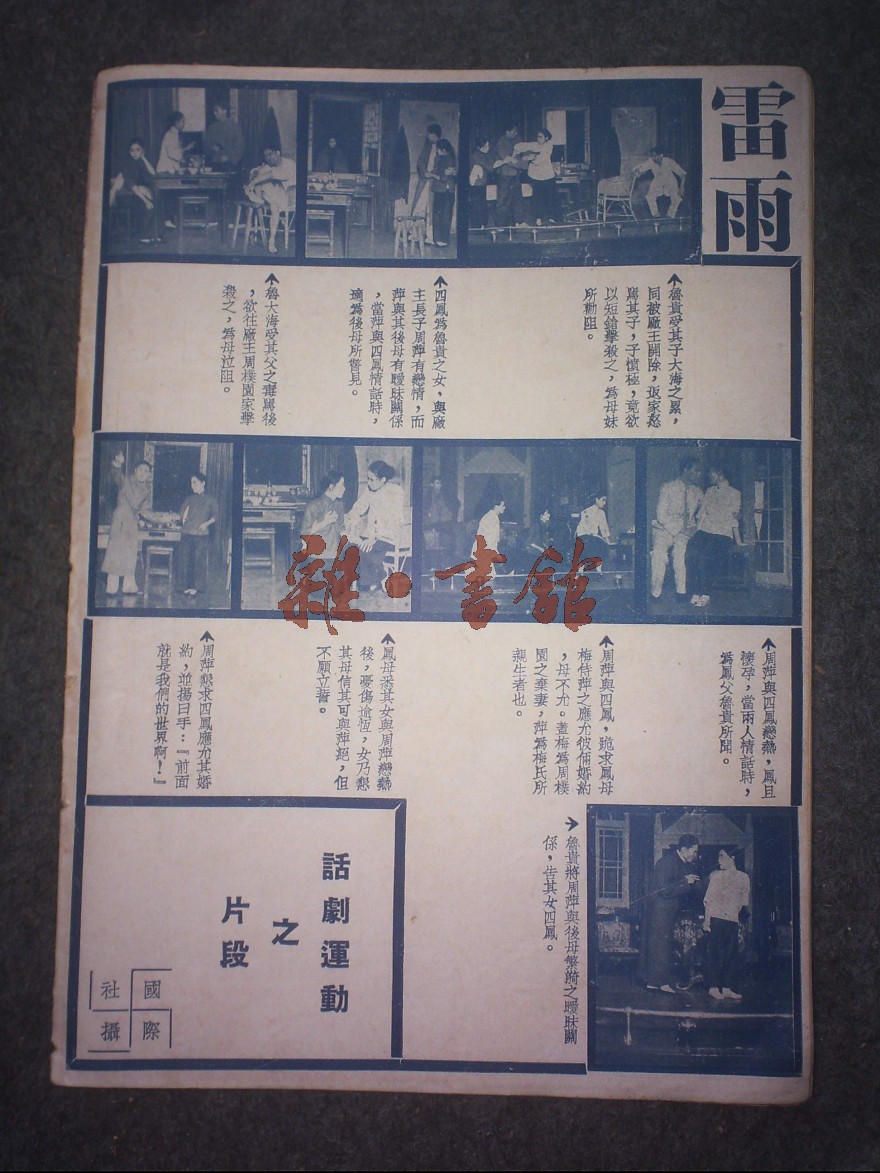 雷雨
↑魯貴受其子大海之累，
同被廠主開除，返家怒
罵其子，子憤極，竟欲
以短鎗擊殺之，爲母妹
所勸阻。
↑四鳳爲魯貴之女，與廠
主長子周萍有戀情，而
萍與其後母有曖昧關係
，當萍與四鳳情話時，
適爲後母所瞥見。
↑魯大海受其父之毒駡後
，欲往廠主周樸園家擊
殺之，爲母泣阻。
↑周萍與四鳳戀熱，鳳且
懷孕，當兩人情話時，
爲鳳父魯貴所聞。
↑周萍與四鳳，跪求鳳母
梅侍萍之應允彼倆婚約
，母不允。蓋梅爲周樸
園之棄妻，萍爲梅氏所
親生者也。
↑鳳母悉其女與周萍戀熱
後，憂傷逾恆，女乃懇
其母信其可與萍絕，但
不願立誓。
↑周萍懇求四鳳應允其婚
約，並揚曰手：『前面
就是我們的世界啊！』
→魯貴將周萍與後母繁漪之曖昧關
係，告其女四鳳。
話劇運動
之
片段
國際
社攝
雜·書館